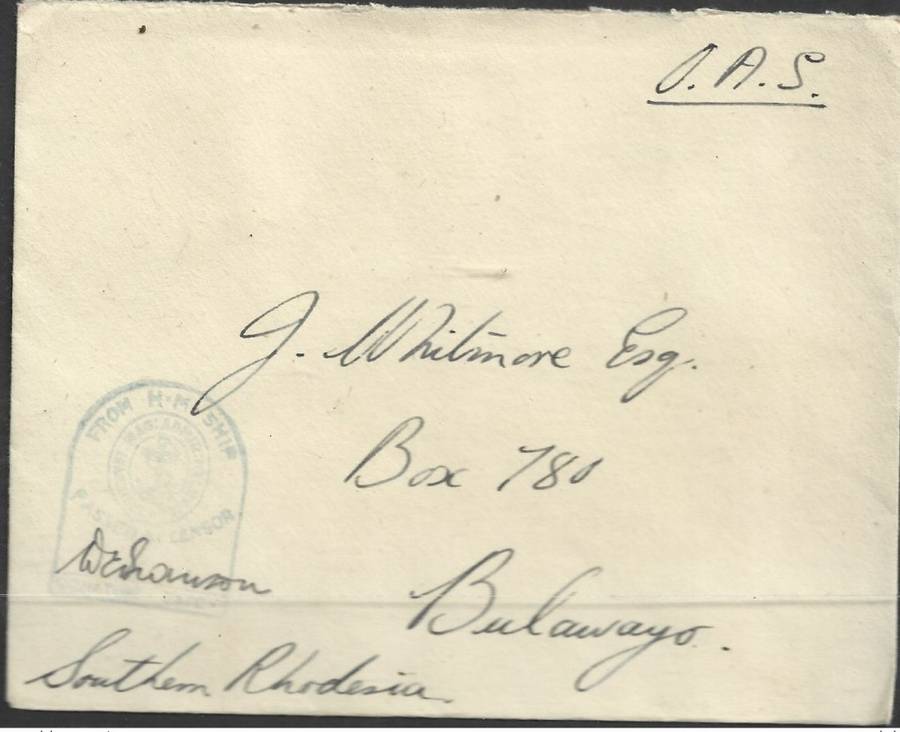 O.A.S.
J. Whitmore Esq.
Box 780
Bulawayo.
Southern Rhodesia.
FROM H.M. SHIP
PASSED CENSOR